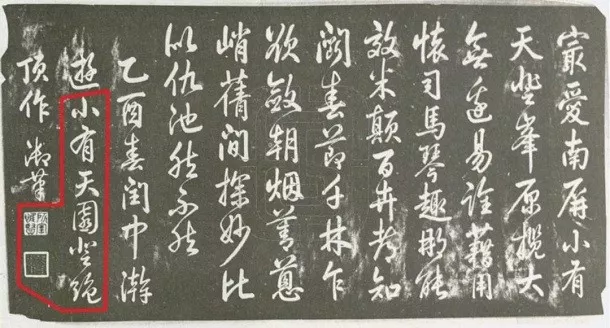 㝡愛南屏小有
天登峯原攬大
無邊易詮藉用
懷司馬琴趣那能
效米顛百卉都知
春節千林乍
欲斂朝烟菁蔥
峭蒨間探妙比
似仇池然不然
乙酉春閏中澣
遊小有天園登絶
頂作 御筆